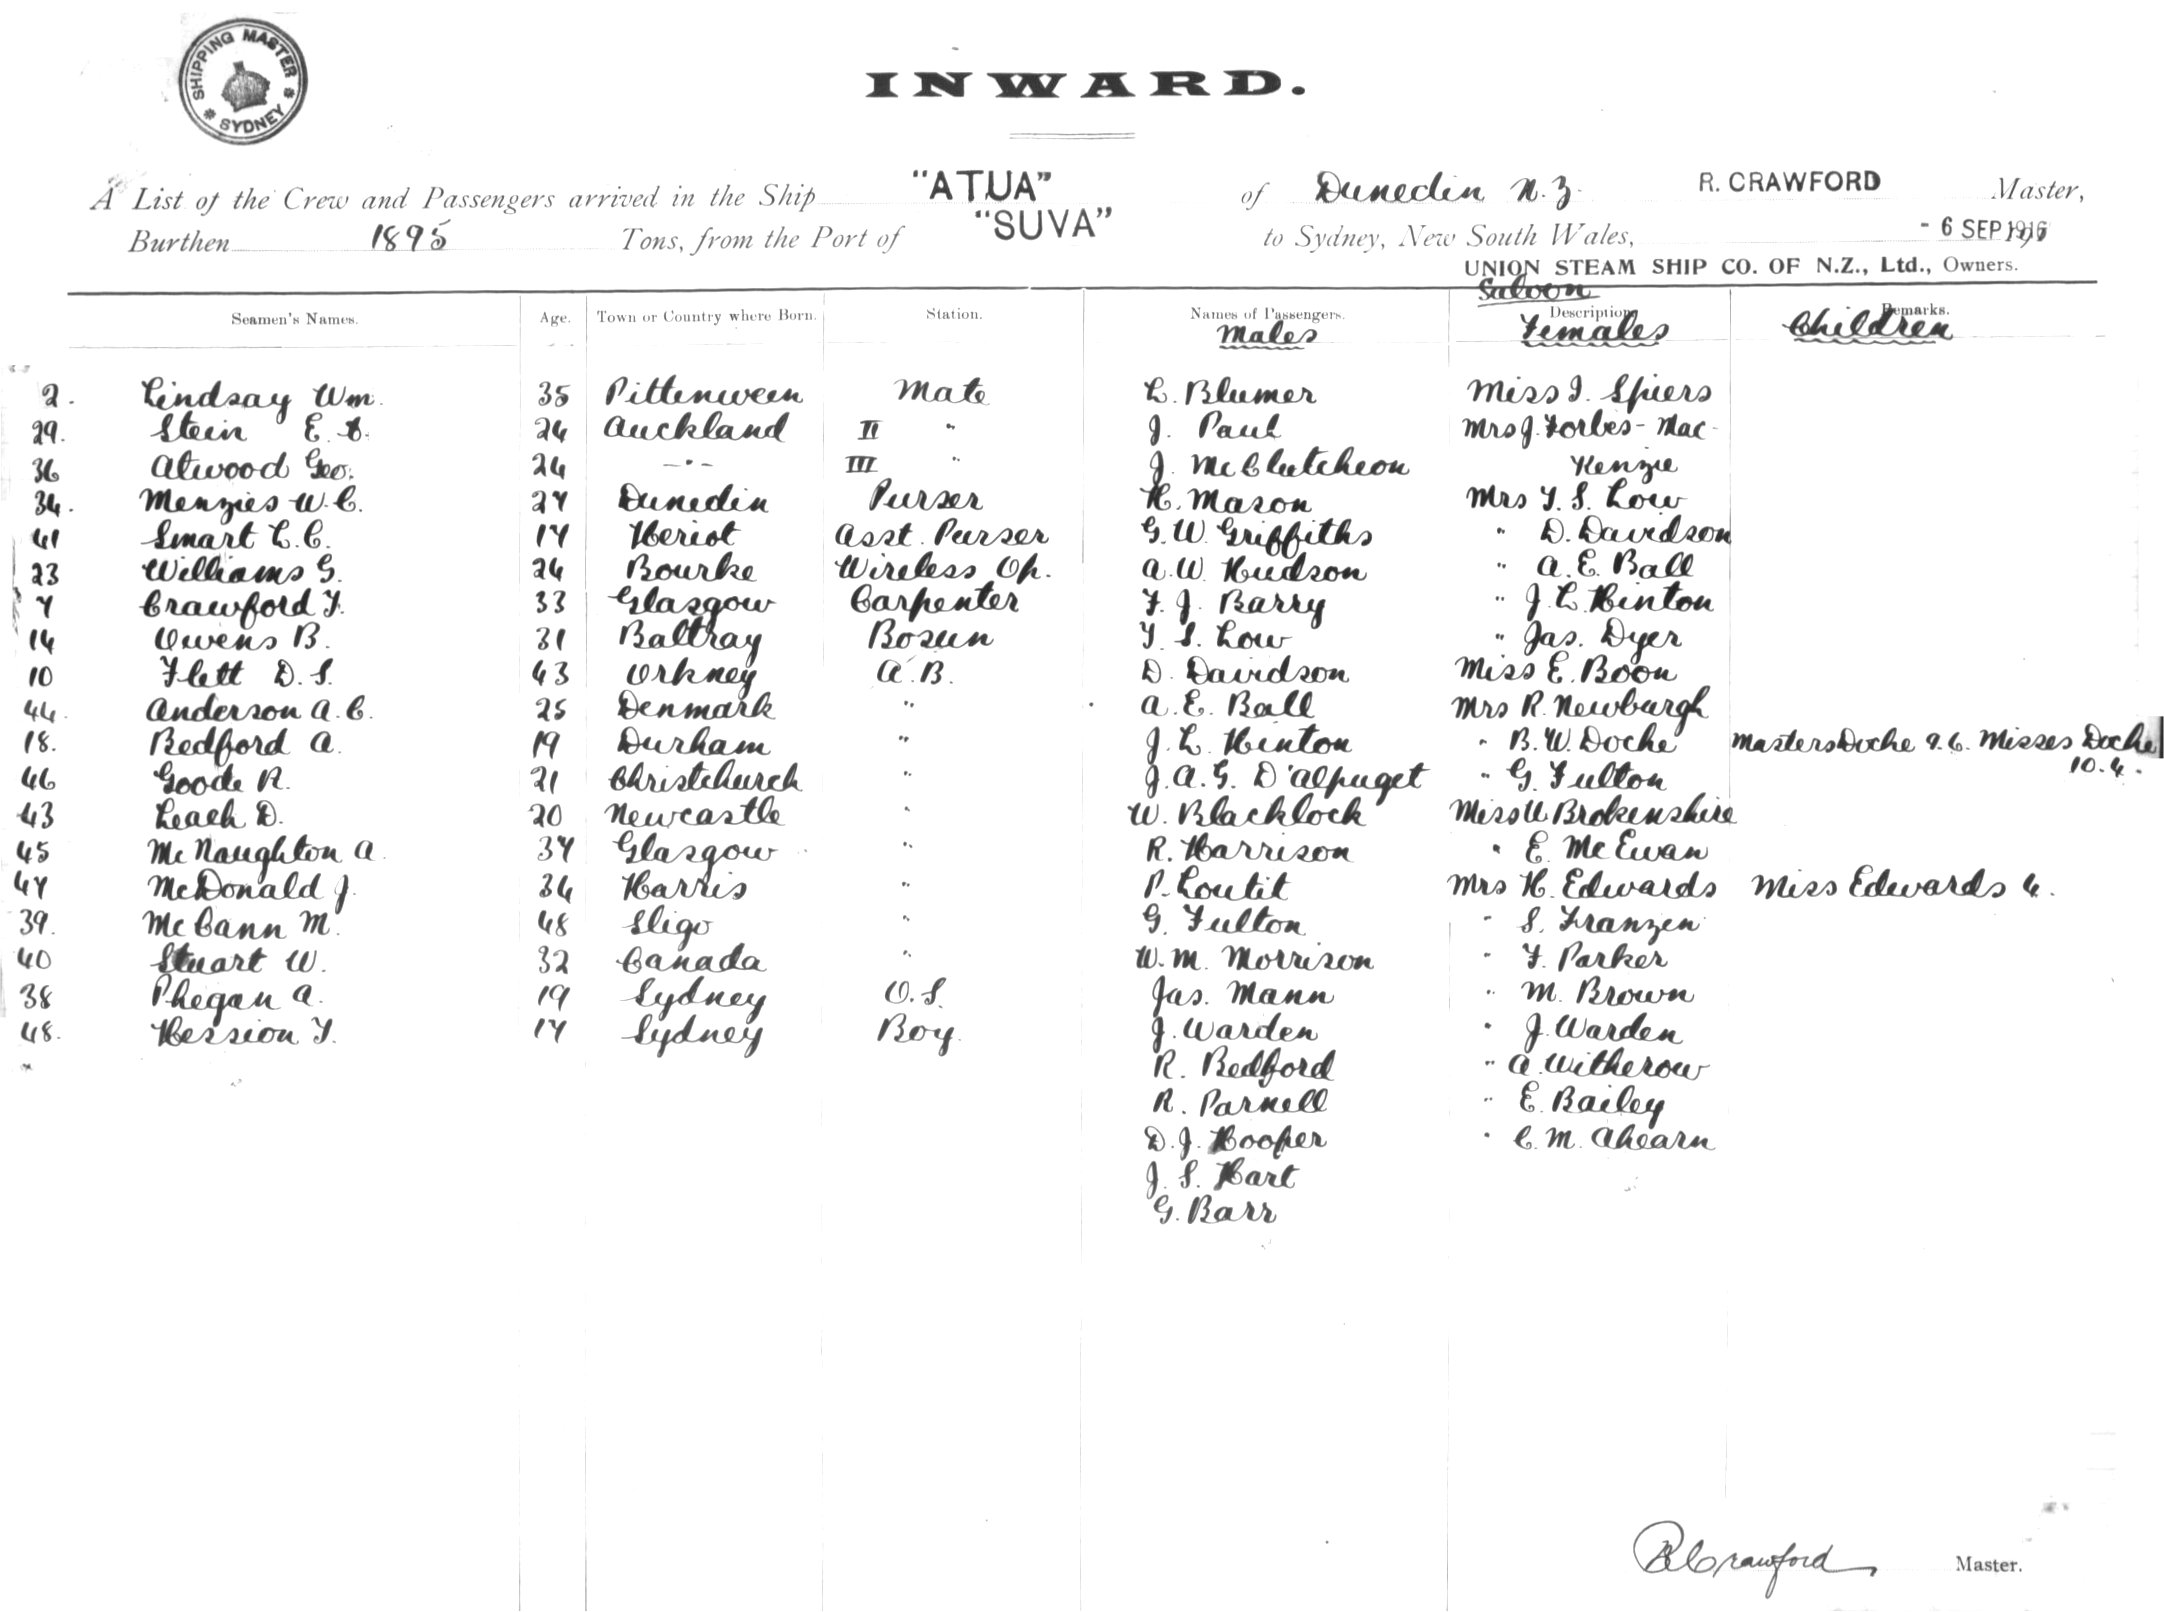 SHIPPING MASTER
* SYDNEY *
INWARD.
A List of the Crew and Passengers arrived in the Ship "ATUA" of Dunedin N.Z. R. CRAWFORD Master,
Burthen 1895 Tons, from the Port of "SUVA" to Sydney, New South Wales, - 6 SEP 1916
UNION STEAM SHIP CO. OF N.Z., Ltd., Owners.
Saloon
Seamen's Names. Age. Town or Country where Born. Station. Names of Passengers. Description Remarks.
Males Females Children
2. Lindsay Wm. 35 Pittenween Mate L. Blumer Miss I. Spiers
29. Stein E. 24 Auckland II " J. Paul Mrs J. Forbes-Mac-
36 Atwood Geo. 24 -"- III " J. McClutcheon Kenzie
34. Menzies W.C. 27 Dunedin Purser H. Mason Mrs T. S. Low
41 Smart L.C. 17 Heriot Asst. Purser G. W. Griffiths " D. Davidson
23 Williams G. 24 Bourke Wireless Op. A. W. Hudson " A. E. Ball
7 Crawford T. 33 Glasgow Carpenter F. J. Barry " J. L. Hinton
14 Owens B. 31 Baltray Bosun T. S. Low " Jas. Dyer
10 Flett D. S. 43 Orkney A.B. D. Davidson Miss E. Boon
44. Anderson A. C. 25 Denmark " A. E. Ball Mrs R. Newburgh
18. Bedford A. 19 Durham " J. L. Hinton " B. W. Doche Masters Doche 9. 6. Misses Doche
46 Goode R. 21 Christchurch " J. A. G. D'Alpuget " G. Fulton 10. 4.
43 Leach D. 20 Newcastle " W. Blacklock Miss U Brokenshire
45 McNaughton A 37 Glasgow " R. Harrison " E. McEwan
47 McDonald J. 34 Harris " P. Loutit Mrs H. Edwards Miss Edwards 4.
39. McCann M. 48 Sligo " G. Fulton " S. Franzen
40 Stuart W. 32 Canada " W. M. Morrison " F. Parker
38 Phegan A. 19 Sydney O.S. Jas. Mann " M. Brown
48. Hession T. 17 Sydney Boy. J. Warden " J. Warden
R. Bedford " A. Witherow
R. Parnell " E. Bailey
D. J. Hooper " C. M. Ahearn
J. S. Hart
G. Barr
R Crawford Master.